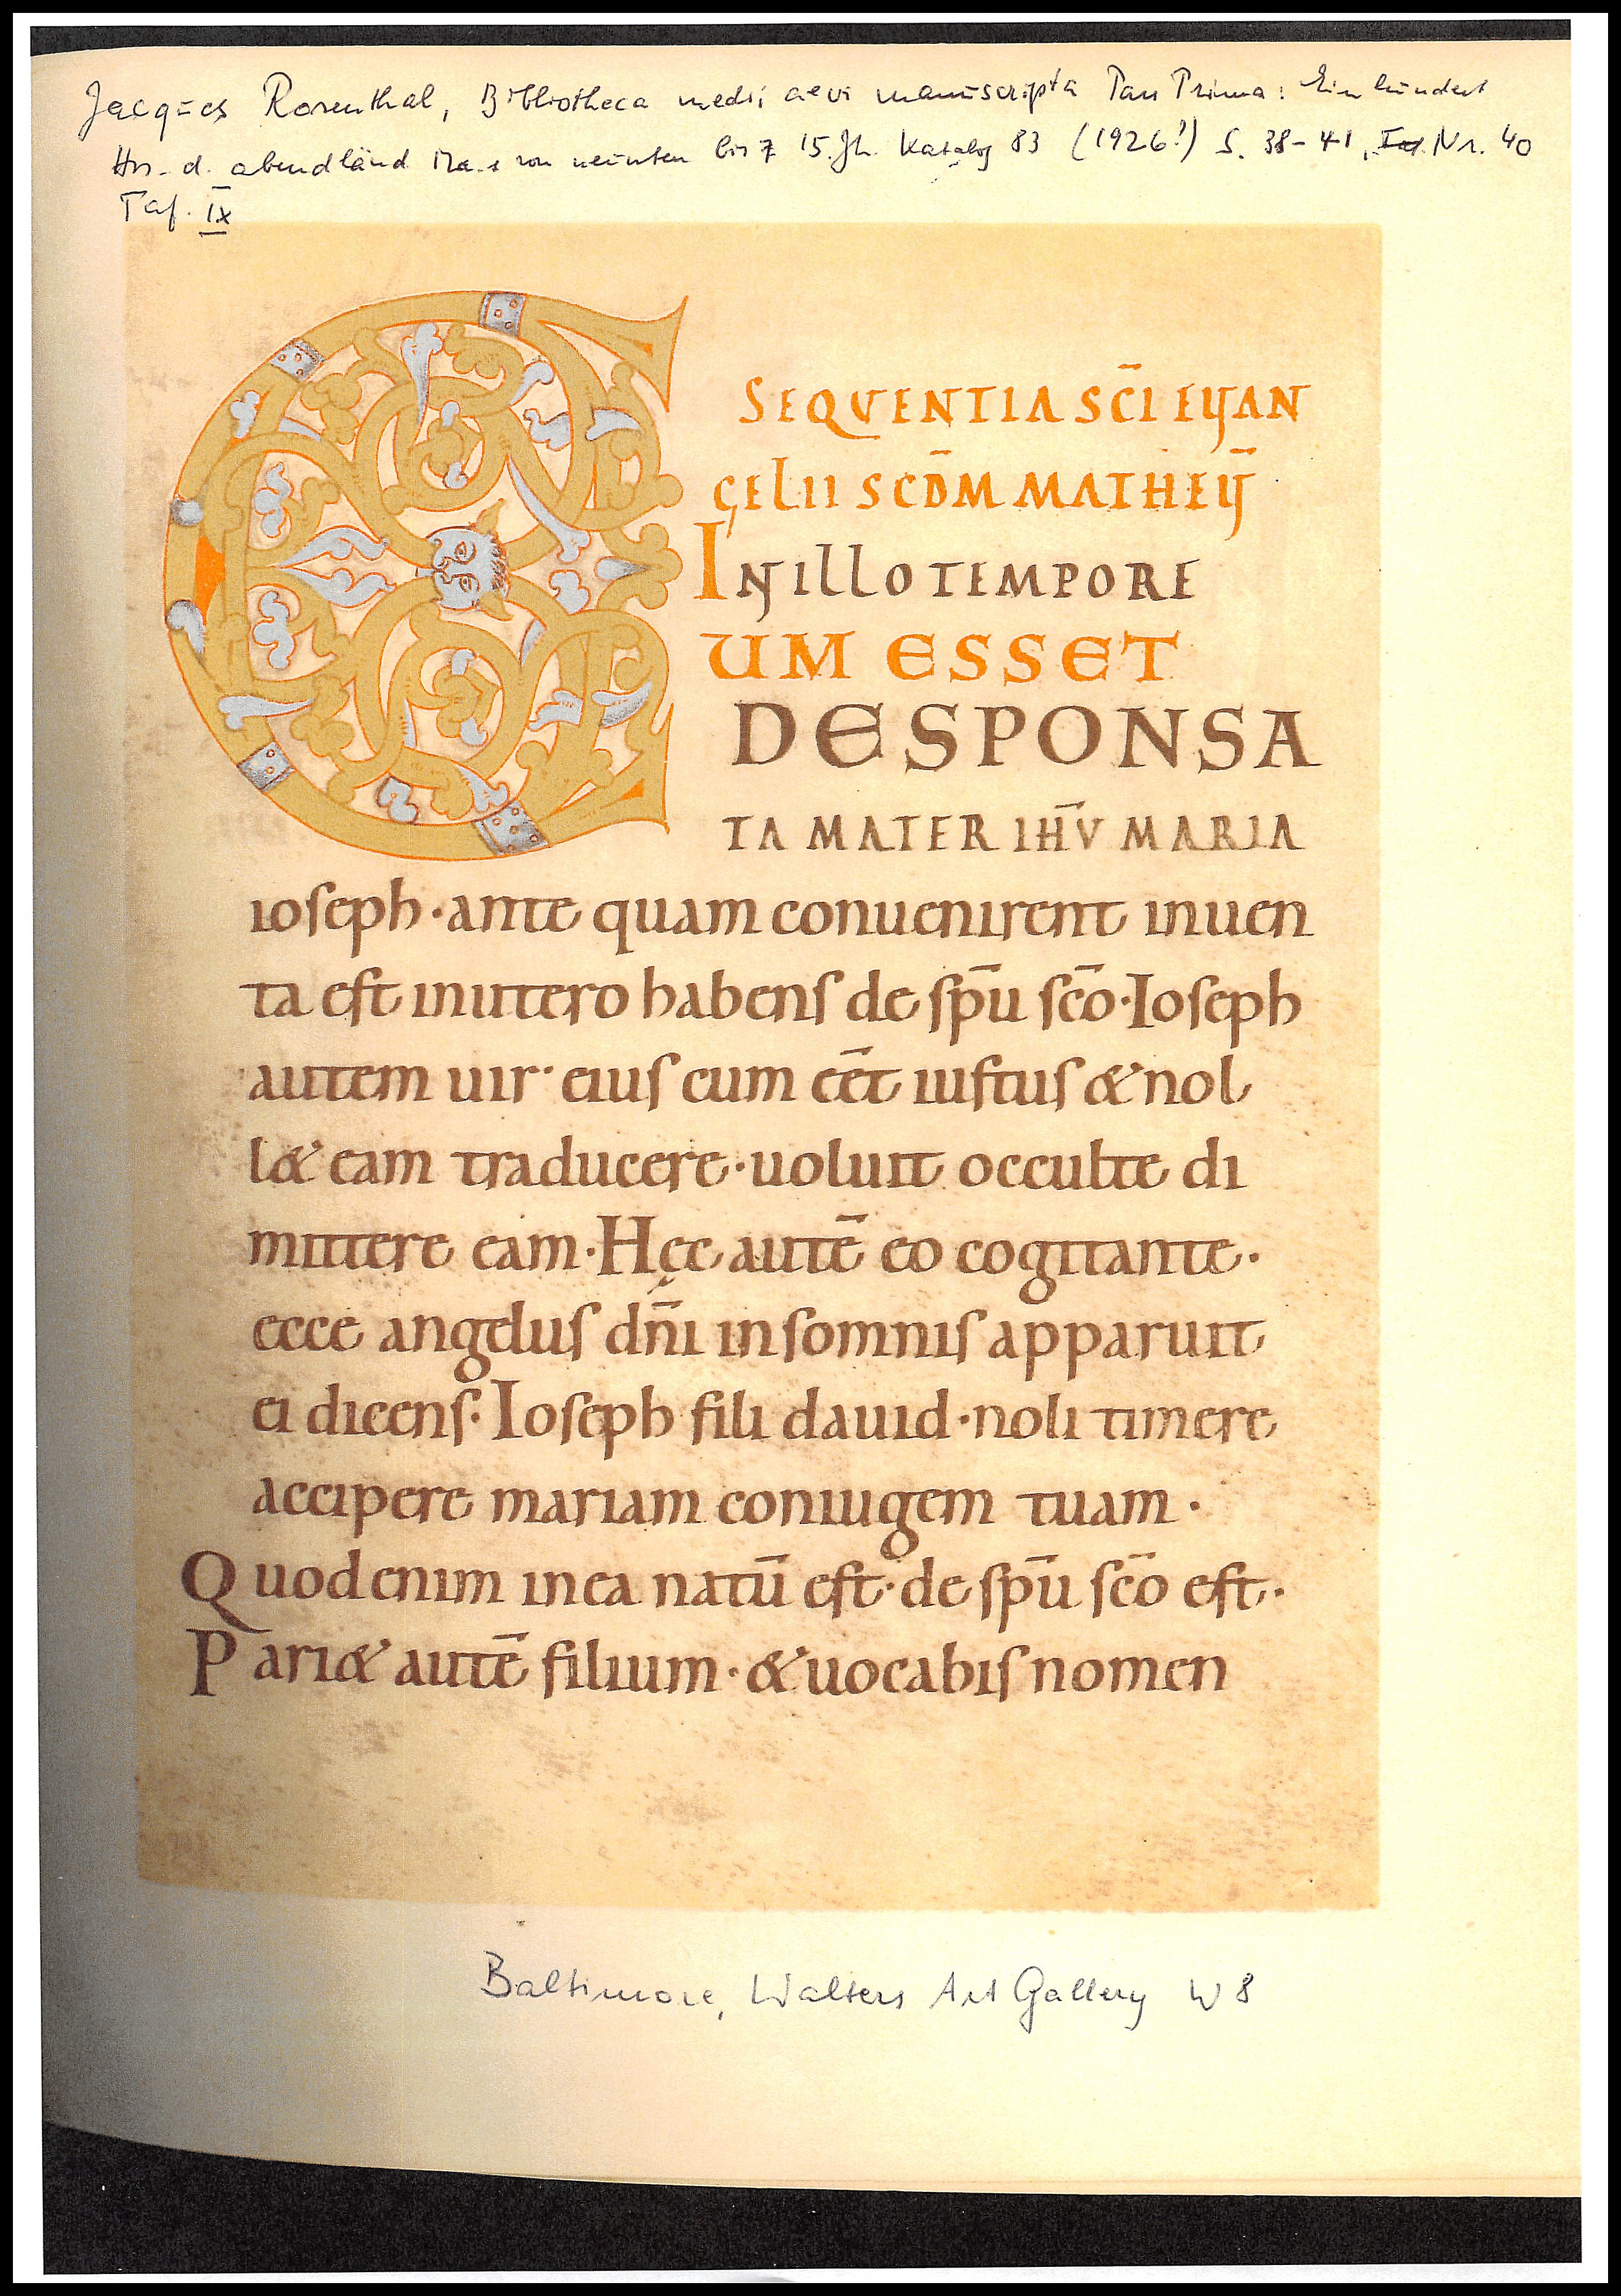 Jacques Rosenthal, Bibliotheca medii aevi manuscripta Pars Prima: Einhundert
Hss. d. abendländ Ma.s von neunten bis z 15. Jh. Katalog 83 (1926!) S. 38-41, Nr. 40
Taf. IX
SEQVENTIA SC̄I EUAN
GELII SCD̄M MATHEŪ
IN ILLO TEMPORE
CUM ESSET
DESPONSA
TA MATER IHV̄ MARIA
ioseph · ante quam conuenirent inuen
ta est inutero habens de sp̄u sc̄o · Ioseph
autem uir · eius cum eēt iustus & nol
l& eam traducere · uoluit occulte di
mittere eam · Hęc autē eo cogitante ·
ecce angelus dn̄i insomnis apparuit
ei dicens · Ioseph fili dauid · noli timere
accipere mariam coniugem tuam ·
Quod enim inea natū est · de sp̄u sc̄o est ·
Pari& autē filium · & uocabis nomen
Baltimore, Walters Art Gallery W 8